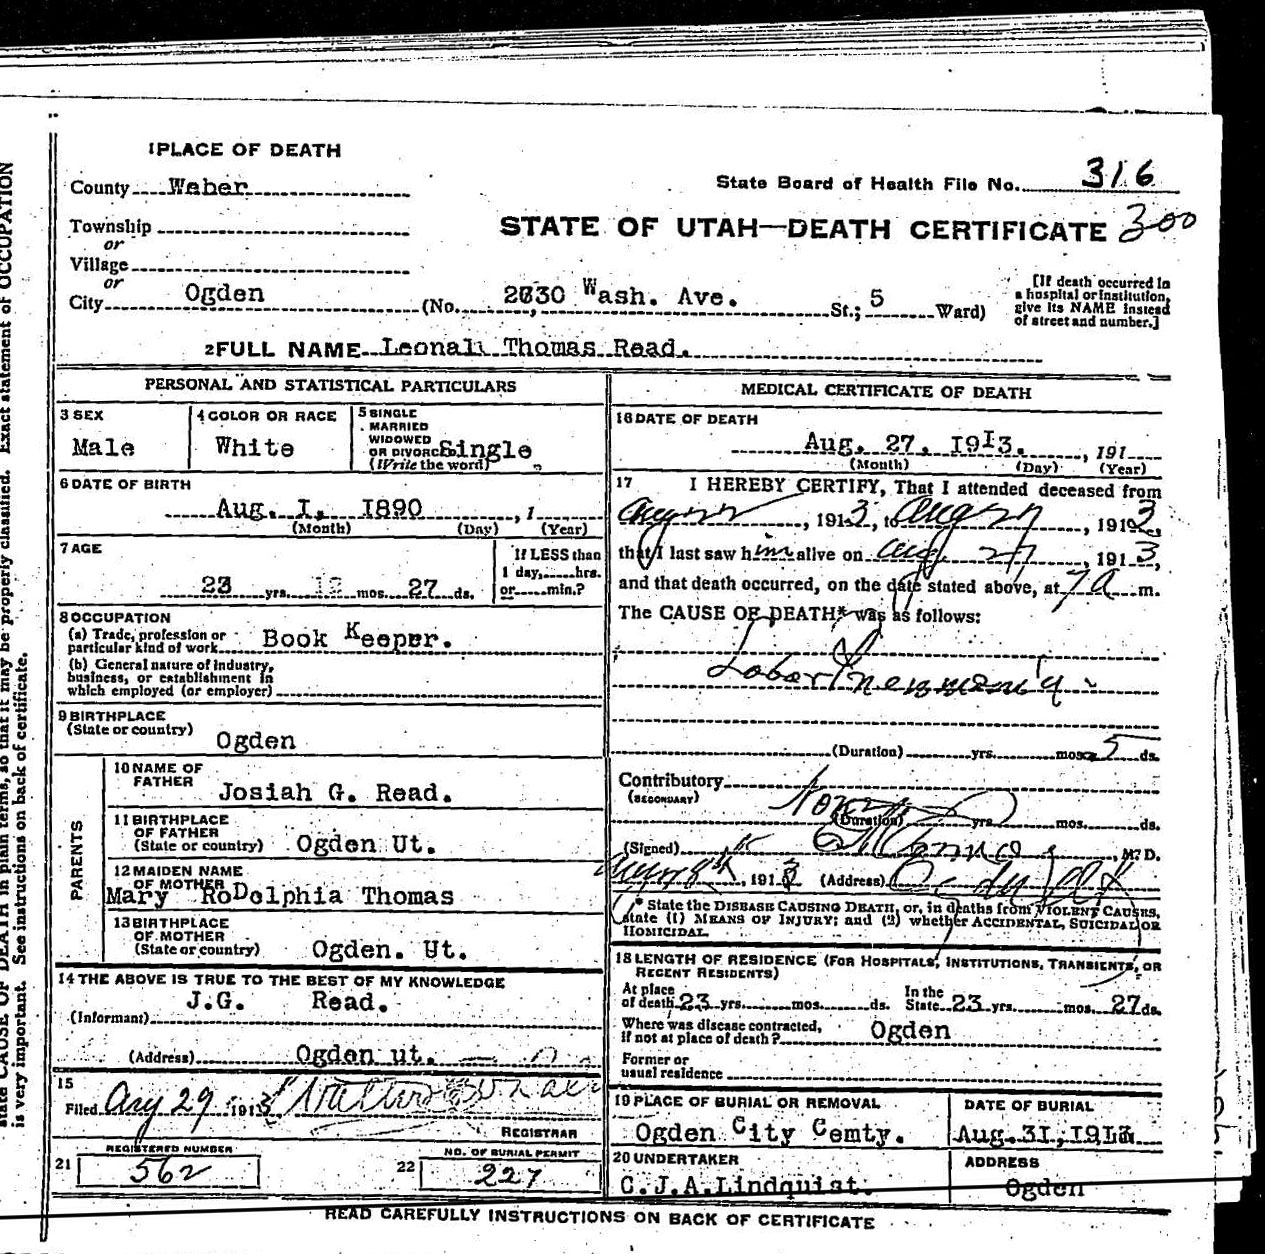 1PLACE OF DEATH
County Weber
State Board of Health File No. 316
Township
or
STATE OF UTAH—DEATH CERTIFICATE 300
Village
or
City Ogden (No. 2630 Wash. Ave. St.; 5 Ward)
[If death occurred in
a hospital or institution,
give its NAME instead
of street and number.]
2FULL NAME Leonall Thomas Read.
PERSONAL AND STATISTICAL PARTICULARS
3 SEX
Male
4 COLOR OR RACE
White
5 SINGLE
MARRIED
WIDOWED
OR DIVORCED Single
(Write the word)
6 DATE OF BIRTH
Aug. I, I890 , 1
(Month) (Day) (Year)
7 AGE
23 yrs. mos. 27 ds.
If LESS than
1 day, hrs.
or min.?
8 OCCUPATION
(a) Trade, profession or
particular kind of work Book Keeper.
(b) General nature of industry,
business, or establishment in
which employed (or employer)
9 BIRTHPLACE
(State or country)
Ogden
PARENTS
10 NAME OF
FATHER
Josiah G. Read.
11 BIRTHPLACE
OF FATHER
(State or country) Ogden Ut.
12 MAIDEN NAME
OF MOTHER
Mary RoDolphia Thomas
13 BIRTHPLACE
OF MOTHER
(State or country) Ogden. Ut.
14 THE ABOVE IS TRUE TO THE BEST OF MY KNOWLEDGE
(Informant) J.G. Read.
(Address) Ogden ut.
15
Filed Aug 29 1913 Walter
REGISTRAR
21 REGISTERED NUMBER
562
22 NO. OF BURIAL PERMIT
227
MEDICAL CERTIFICATE OF DEATH
16 DATE OF DEATH
Aug. 27, I9I3. , 191
(Month) (Day) (Year)
17 I HEREBY CERTIFY, That I attended deceased from
Aug 22 , 1913, to Aug 27 , 1913,
that I last saw him alive on Aug 27 , 1913,
and that death occurred, on the date stated above, at 7 a m.
The CAUSE OF DEATH* was as follows:
Lobar Pneumonia
(Duration) yrs. mos. 5 ds.
Contributory
(SECONDARY)
(Duration) yrs. mos. ds.
(Signed) , M. D.
, 1913 (Address)
* State the DISEASE CAUSING DEATH, or, in deaths from VIOLENT CAUSES,
state (1) MEANS OF INJURY; and (2) whether ACCIDENTAL, SUICIDAL OR
HOMICIDAL.
18 LENGTH OF RESIDENCE (FOR HOSPITALS, INSTITUTIONS, TRANSIENTS, OR
RECENT RESIDENTS)
At place
of death 23 yrs. mos. ds.
In the
State 23 yrs. mos. 27 ds.
Where was disease contracted,
if not at place of death? Ogden
Former or
usual residence
19 PLACE OF BURIAL OR REMOVAL
Ogden City Cemty.
DATE OF BURIAL
Aug.3I,1913
20 UNDERTAKER
C.J.A.Lindquist.
ADDRESS
Ogden
READ CAREFULLY INSTRUCTIONS ON BACK OF CERTIFICATE
state CAUSE OF DEATH in plain terms, so that it may be properly classified. Exact statement of OCCUPATION
is very important. See instructions on back of certificate.